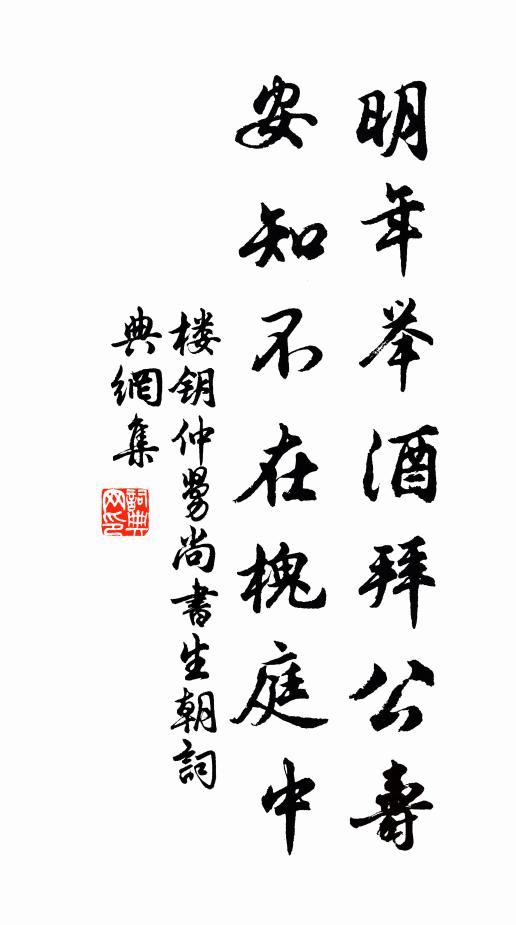 明年举酒拜公壽
安知不在槐庭中
楼钥仲舅尚書生朝詞
典網集
詞典
网印